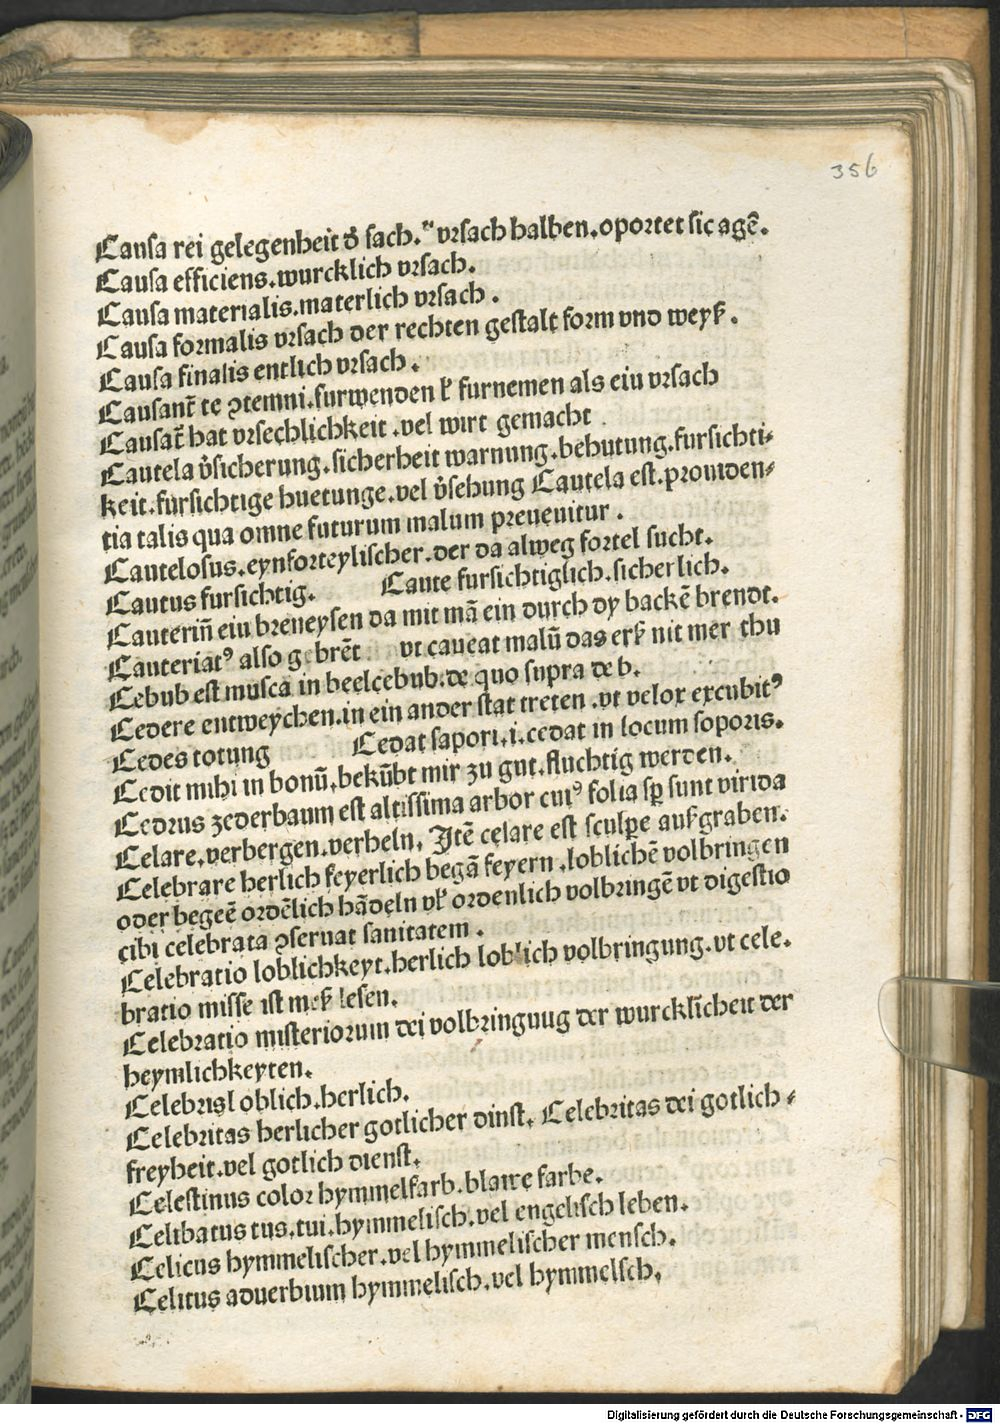 356
Causa rei gelegenheit d̕ sach. vrsach halben. oportet sic agē.
Causa efficiens. wurcklich vrsach.
Causa materialis. materlich vrsach.
Causa formalis vrsach der rechten gestalt form vnd weyß.
Causa finalis entlich vrsach.
Causant̄ te ꝯtemni. furwenden furnemen als eiu vrsach
Causat̄ hat vrsechlichkeit. vel wirt gemacht
Cautela v̕sicherung. sicherheit warnung. behutung. fursichti-
keit. fursichtige huetunge. vel v̕sehung Cautela est. prouiden-
tia talis qua omne futurum malum preuenitur.
Cautelosus. eynforteylischer. der da alweg fortel sucht.
Cautus fursichtig. Caute fursichtiglich. sicherlich.
Cauteriū eiu breneysen da mit mā ein durch dy backē brendt.
Cauteriatꝰ also gebrēt vt caueat malū das erß nit mer thu
Cebub est musca in beelcebub. de quo supra de b.
Cedere entweychen. in ein ander stat treten. vt velox excubitꝰ
Cedes totung Cedat sapori. i. cedat in locum soporis.
Cedit mihi in bonū. bekūbt mir zu gut. fluchtig werden.
Cedrus zederbaum est altissima arbor cuiꝰ folia sꝑ sunt virida
Celare. verbergen. verheln. Itē celare est sculpe außgraben.
Celebrare herlich feyerlich begā feyern. loblichē volbringen
oder begeē ordēlich hādeln vß ordenlich volbringē vt digestio
cibi celebrata ꝯseruat sanitatem.
Celebratio loblichkeyt. herlich loblich volbringung. vt cele-
bratio misse ist meß lesen.
Celebratio misteriorum dei volbringuug der wurcklicheit der
heymlichkeyten.
Celebris loblich. herlich.
Celebritas herlicher gotlicher dinst. Celebritas dei gotlich-
freyheit. vel gotlich dienst.
Celestinus color hymmelfarb. blawe farbe.
Celibatus tus. tui. hymmelisch. vel engelisch leben.
Celicus hymmelischer. vel hymmelischer mensch.
Celitus aduerbium hymmelisch. vel hymmelsch.
Digitalisierung gefördert durch die Deutsche Forschungsgemeinschaft - DFG